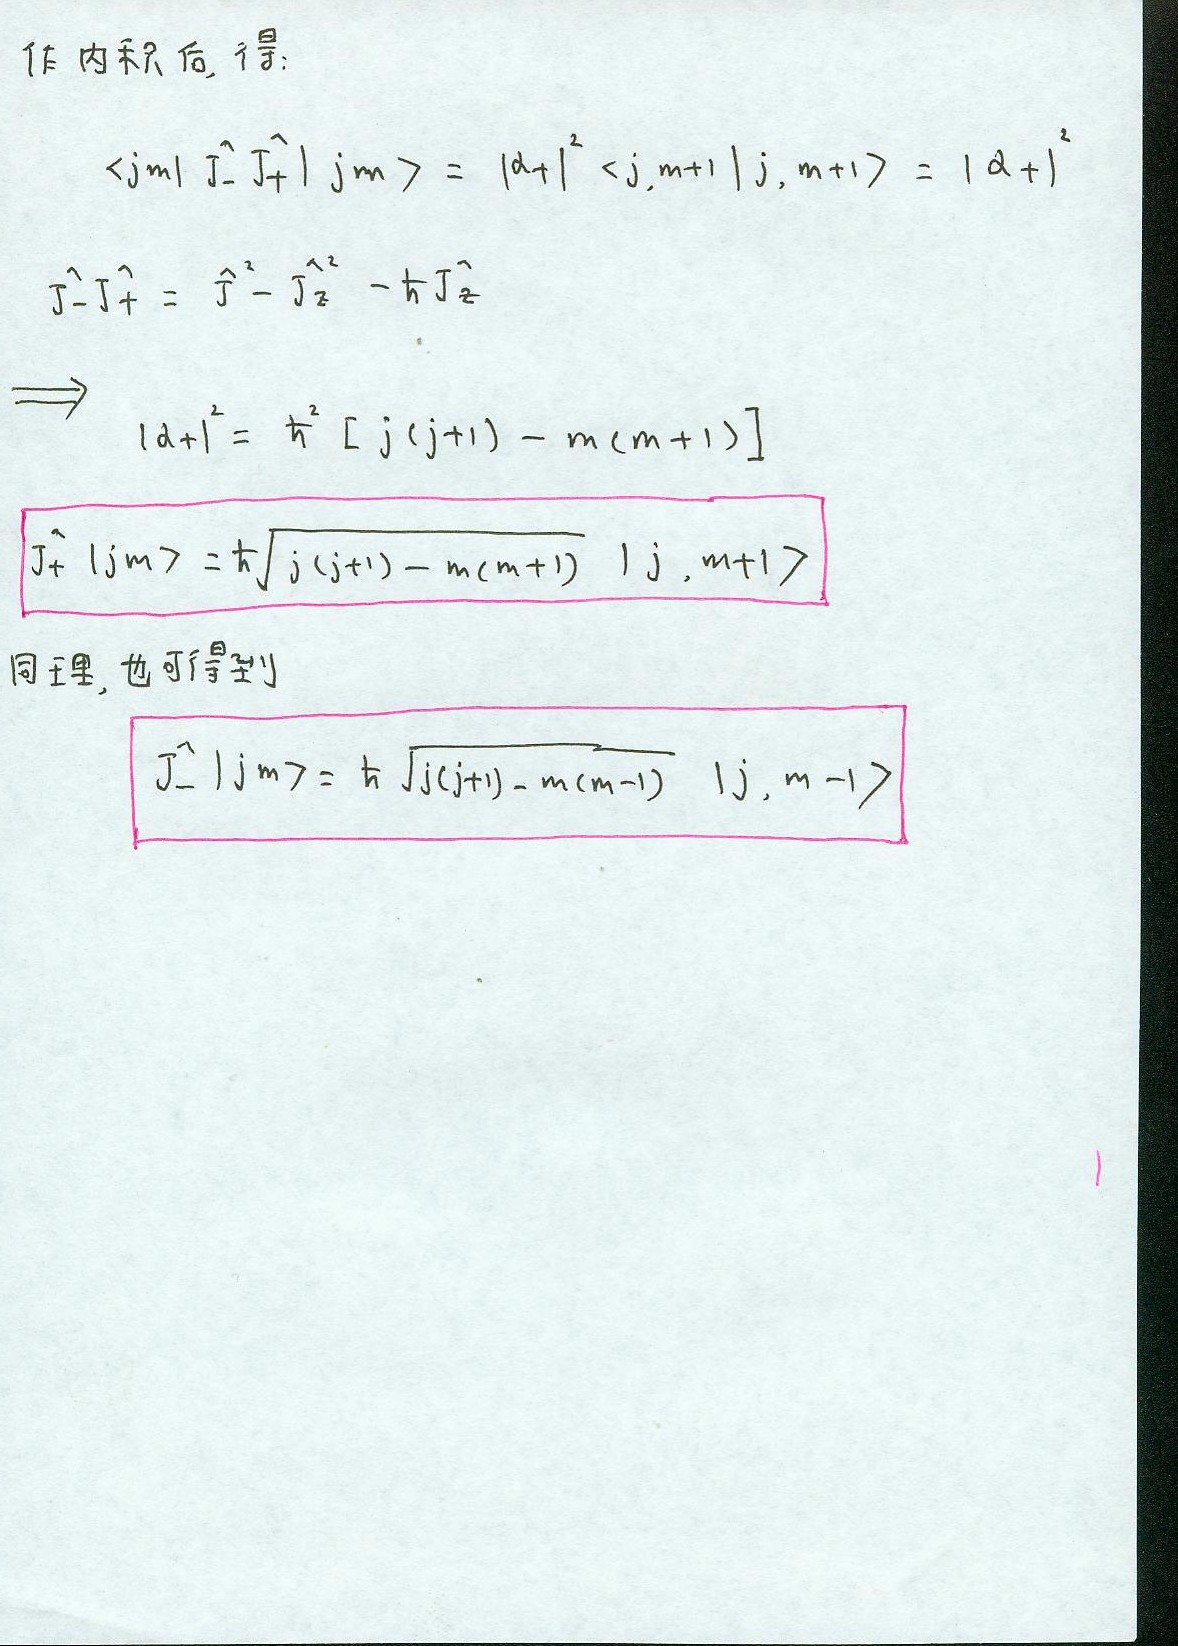 作内积后,得:
<jm| Ĵ₋ Ĵ₊ | jm> = |α₊|² <j,m+1|j,m+1> = |α₊|²
Ĵ₋Ĵ₊ = Ĵ² - Ĵz² - ħĴz
⟹
|α₊|² = ħ² [j(j+1) - m(m+1)]
Ĵ₊ |jm> = ħ√(j(j+1) - m(m+1)) |j,m+1>
同理,也可得到
Ĵ₋ |jm> = ħ√(j(j+1) - m(m-1)) |j,m-1>